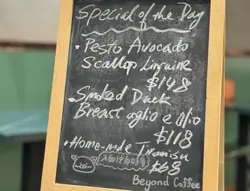 Special of the Day
• Pesto Avocado
Scallop Linguine
$148
• Smoked Duck
Breast aglio e olio
$118
• Home-made Tiramisu
$68
Beyond Coffee